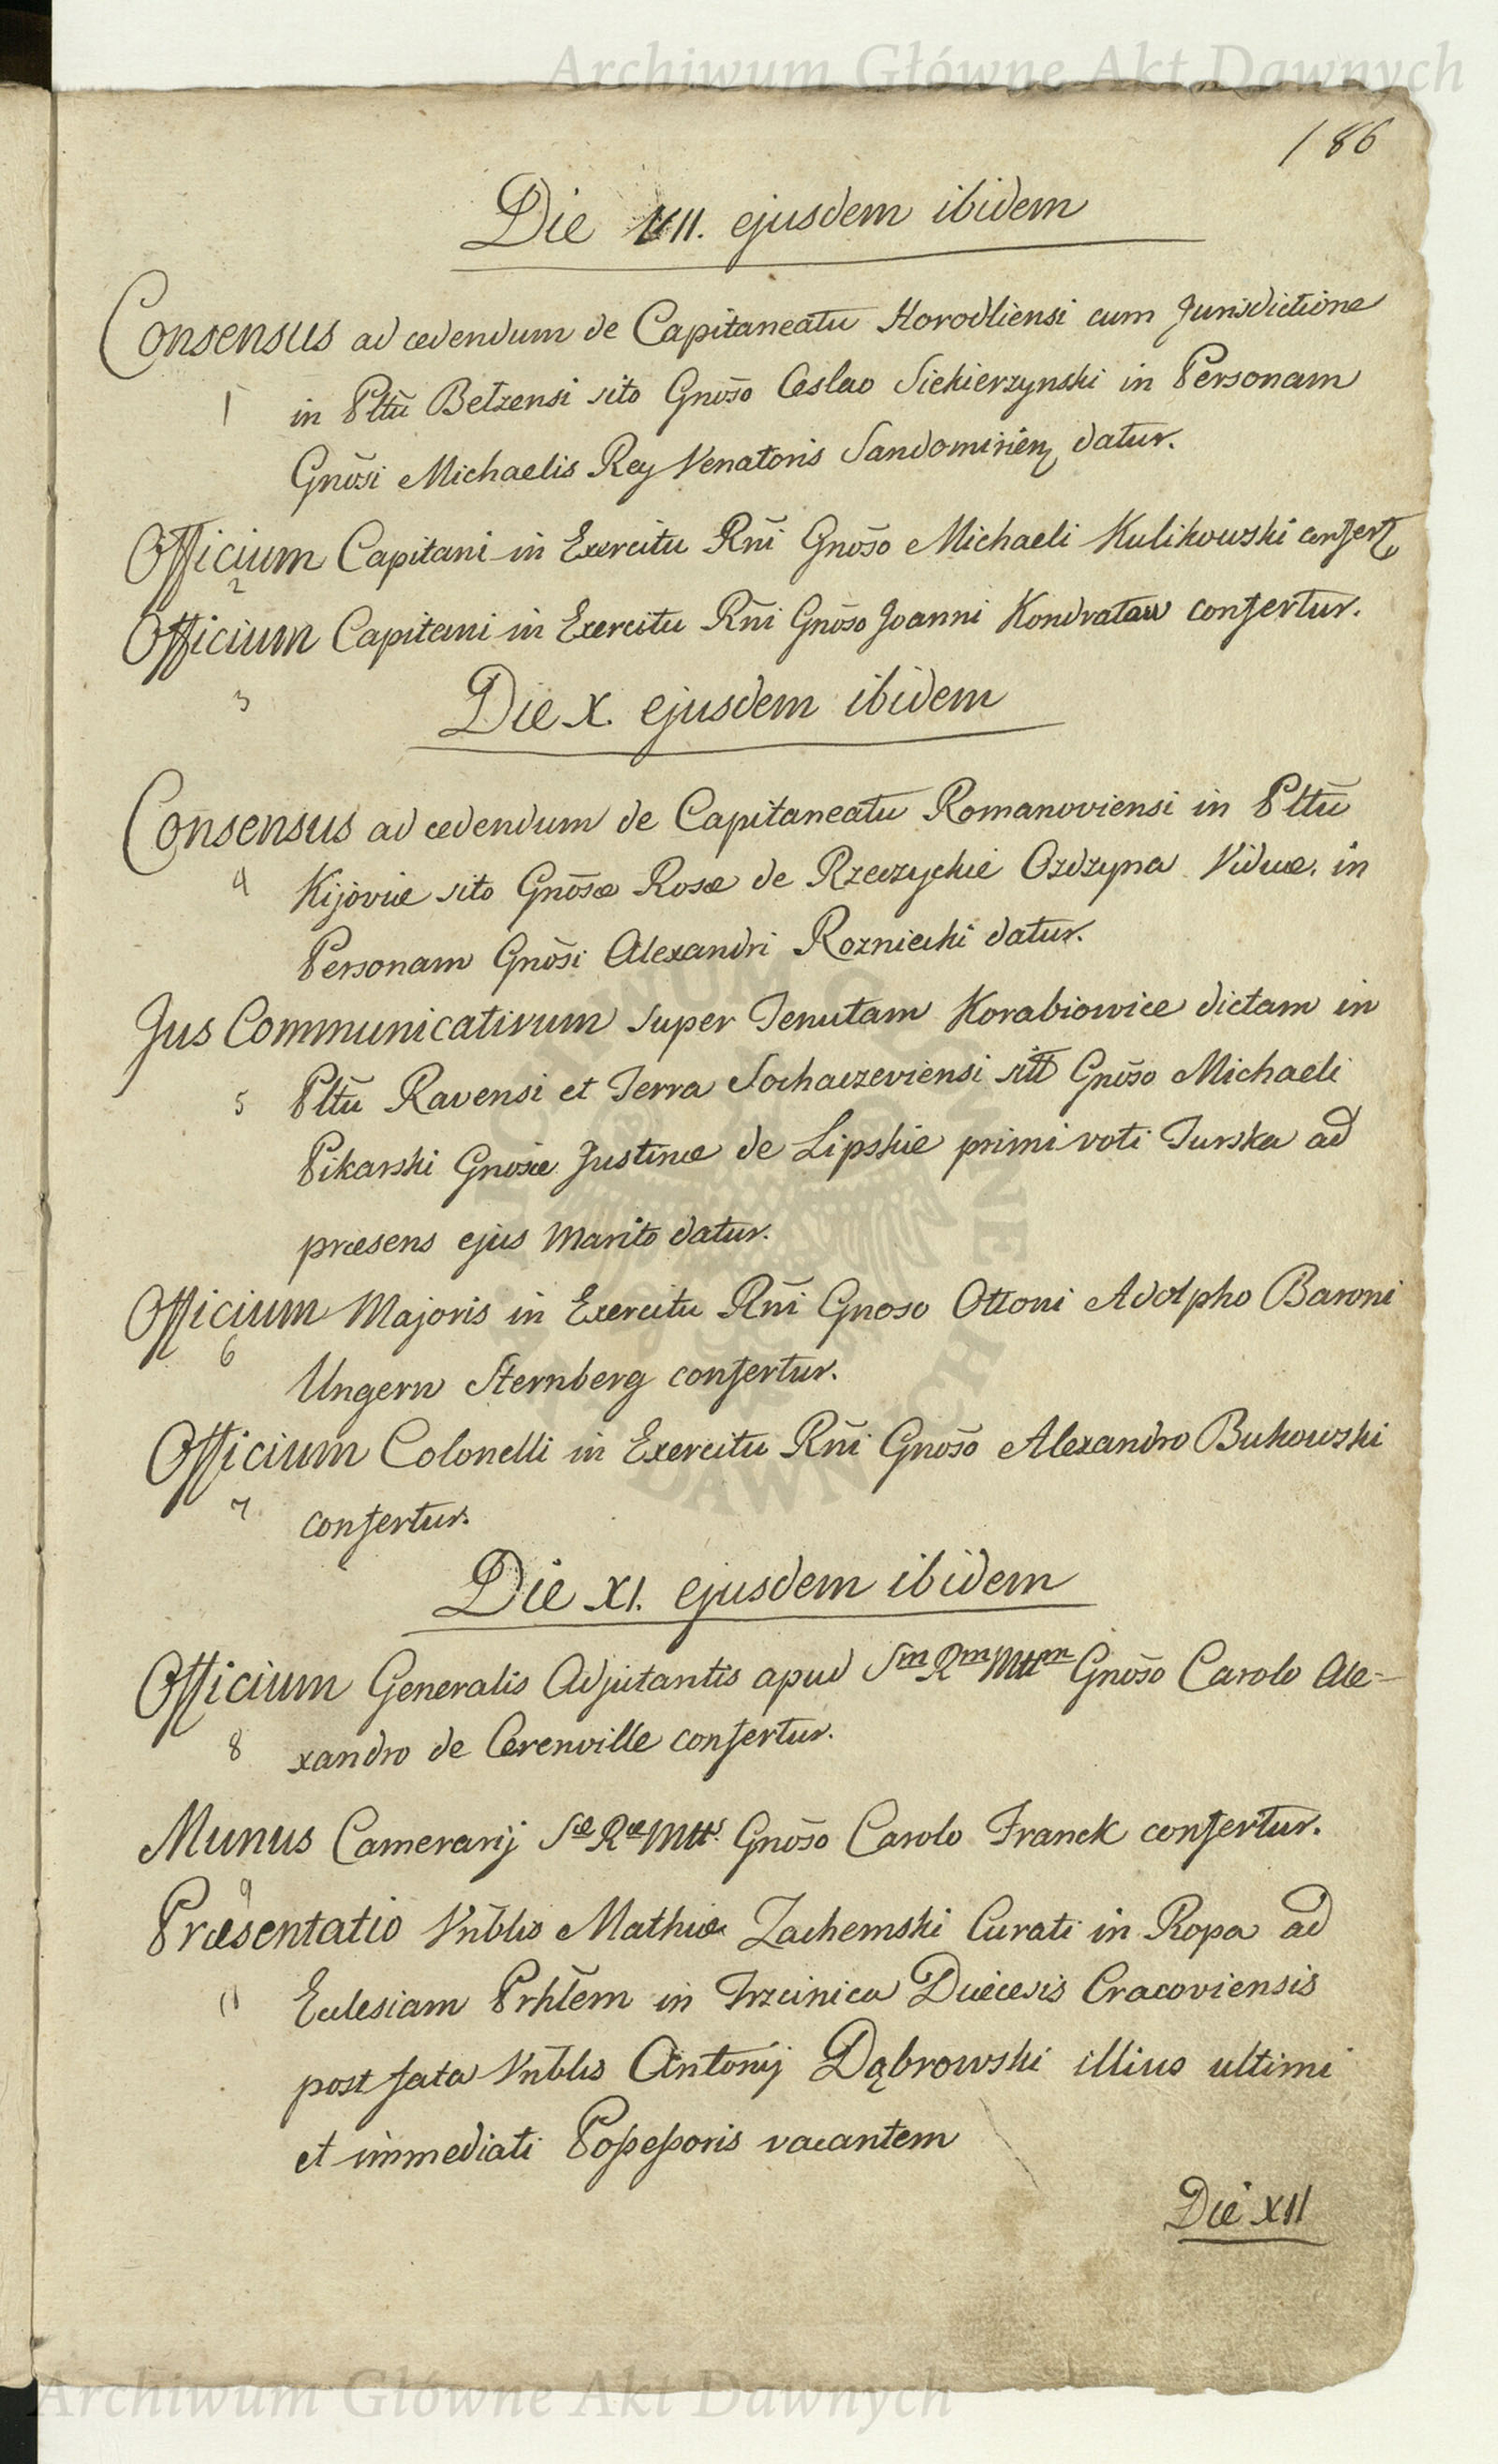 Archiwum Główne Akt Dawnych
186
Die VII. ejusdem ibidem
Consensus ad cedendum de Capitaneatu Horodliensi cum Jurisdictione
1 in Pltũ Betzensi sito Gnõso Ceslao Siekierzynski in Personam
Gnõsi Michaelis Rey Venatoris Sandomirien datur.
Officium Capitani in Exercitu Rñi Gnõso Michaeli Kulikowski confert
2
Officium Capitani in Exercitu Rñi Gnõso Joanni Kondrataw confertur.
3
Die X. ejusdem ibidem
Consensus ad cedendum de Capitaneatu Romanoviensi in Pltũ
4 Kijoviæ sito Gnõsæ Rosæ de Rzeczyckie Ozdzyna Viduæ, in
Personam Gnõsi Alexandri Rozniecki datur.
Jus Communicativum super Tenutam Korabiowice dictam in
5 Pltũ Ravensi et Terra Sochaczeviensi sitt Gnõso Michaeli
Pikarski Gnosæ Justinæ de Lipskie primi voti Turska ad
præsens ejus Marito datur.
Officium Majoris in Exercitu Rñi Gnoso Ottoni Adolpho Baroni
6 Ungern Sternberg confertur.
Officium Colonelli in Exercitu Rñi Gnõso Alexandro Bukowski
7 confertur.
Die XI. ejusdem ibidem
Officium Generalis Adjutantis apud Sm Rm Mttm Gnõso Carolo Ale=
8 xandro de Cerenville confertur.
Munus Camerarij Sæ Ræ Mtts Gnõso Carolo Franck confertur.
9
Præsentatio Vnb̃lis Mathiæ Zachemski Curati in Ropa ad
Ecclesiam Prhl̃em in Trzcinica Diæcesis Cracoviensis
post fata Vnb̃lis Antonij Dąbrowski illius ultimi
et immediati Possessoris vacantem
Die XII
Archiwum Główne Akt Dawnych